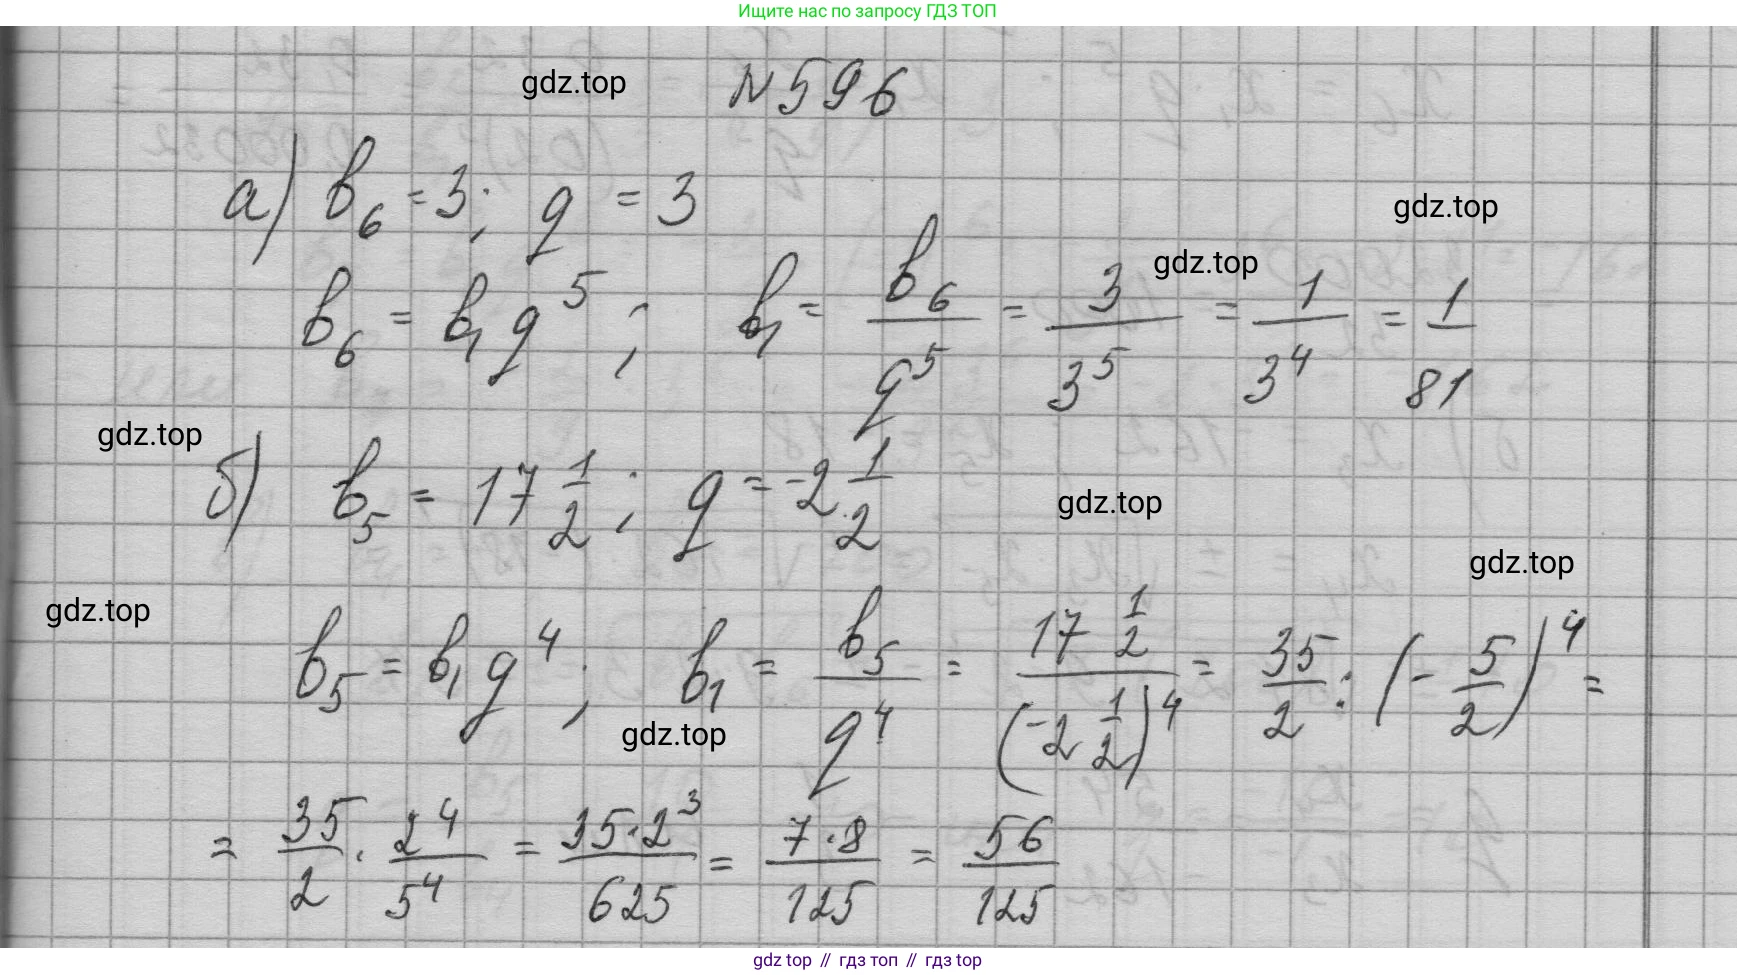 Ищите нас по запросу ГДЗ ТОП
gdz.top
N 596
а) b₆ = 3; q = 3
gdz.top
gdz.top
b₆ = b₁q⁵; b₁ = b₆/q⁵ = 3/3⁵ = 1/3⁴ = 1/81
gdz.top
б) b₅ = 17 1/2; q = -2 1/2
gdz.top
gdz.top
gdz.top
b₅ = b₁q⁴; b₁ = b₅/q⁴ = 17 1/2 / (-2 1/2)⁴ = 35/2 : (-5/2)⁴ =
gdz.top
= 35/2 · 2⁴/5⁴ = 35·2³/625 = 7·8/125 = 56/125
gdz top // гдз топ // гдз top